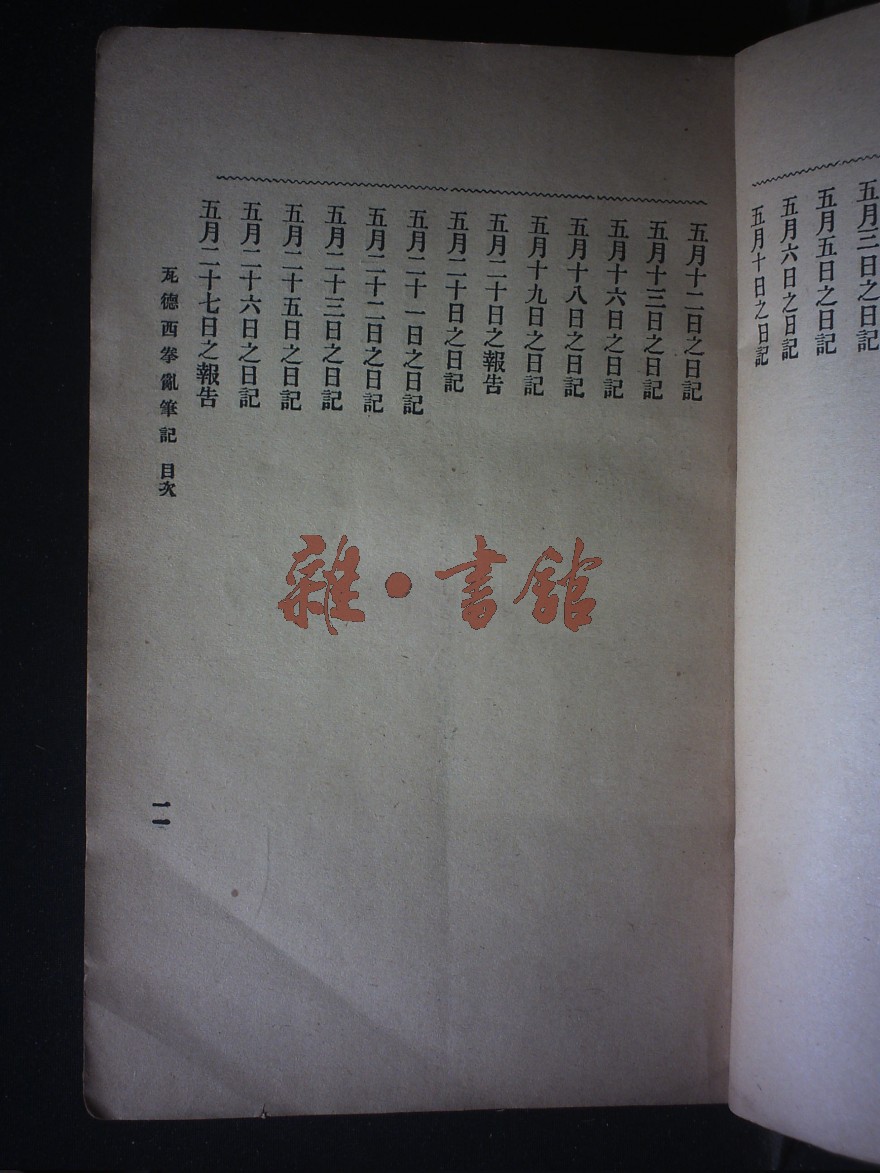 五月三日之日記
五月五日之日記
五月六日之日記
五月十日之日記
五月十二日之日記
五月十三日之日記
五月十六日之日記
五月十八日之日記
五月十九日之日記
五月二十日之報告
五月二十日之日記
五月二十一日之日記
五月二十二日之日記
五月二十三日之日記
五月二十五日之日記
五月二十六日之日記
五月二十七日之報告
瓦德西拳亂筆記 目次
一一
雜·書館